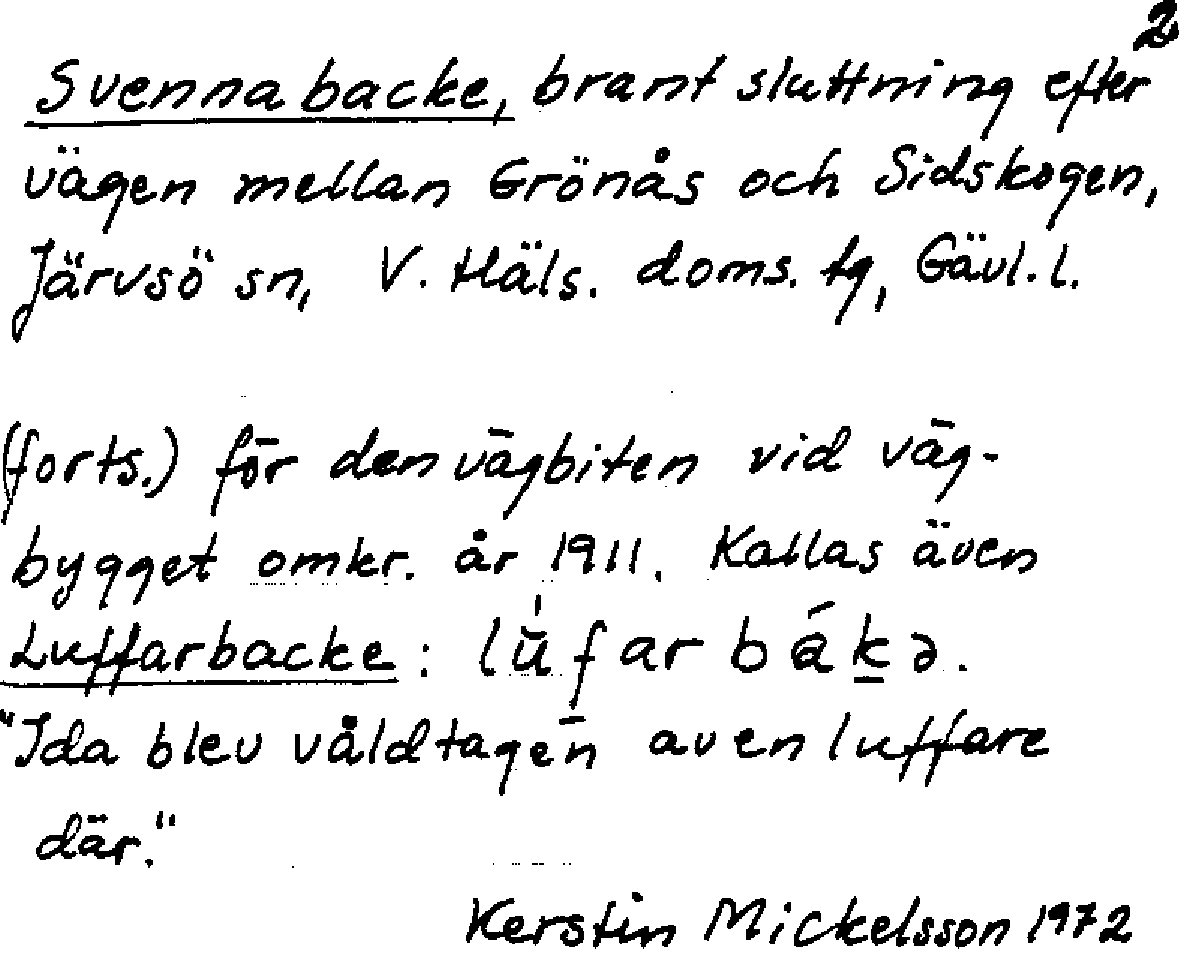 2
Svennabacke, brant sluttning efter
vägen mellan Grönås och Sidskogen,
Järvsö sn, V. Häls. doms. tg, Gävl. l.
(forts.) för den vägbiten vid väg-
bygget omkr. år 1911. Kallas även
Luffarbacke: lŭ́farbákə.
"Ida blev våldtagen av en luffare
där."
Kerstin Mickelsson 1972